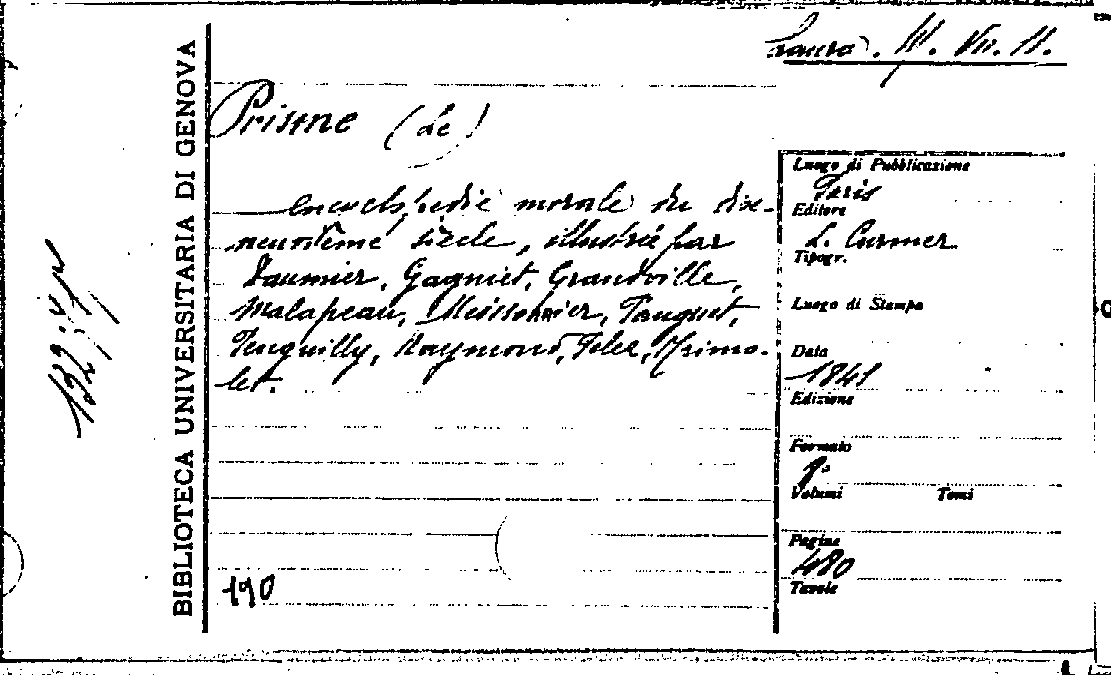 Laura. III. VII. 11.
BIBLIOTECA UNIVERSITARIA DI GENOVA
Prisme (Le)
encyclopedie morale du dix-
neuvième siècle, illustré par
Daumier, Gagniet, Grandville,
Malapeau, Meissonier, Pauquet,
Penguilly, Raymond, Pelez, Trimo-
let.
190
Luogo di Pubblicazione
Paris
Editore
L. Curmer
Tipogr.
Luogo di Stampa
Data
1841
Edizione
Formato
Volumi Tomi
Pagine
480
Tavole